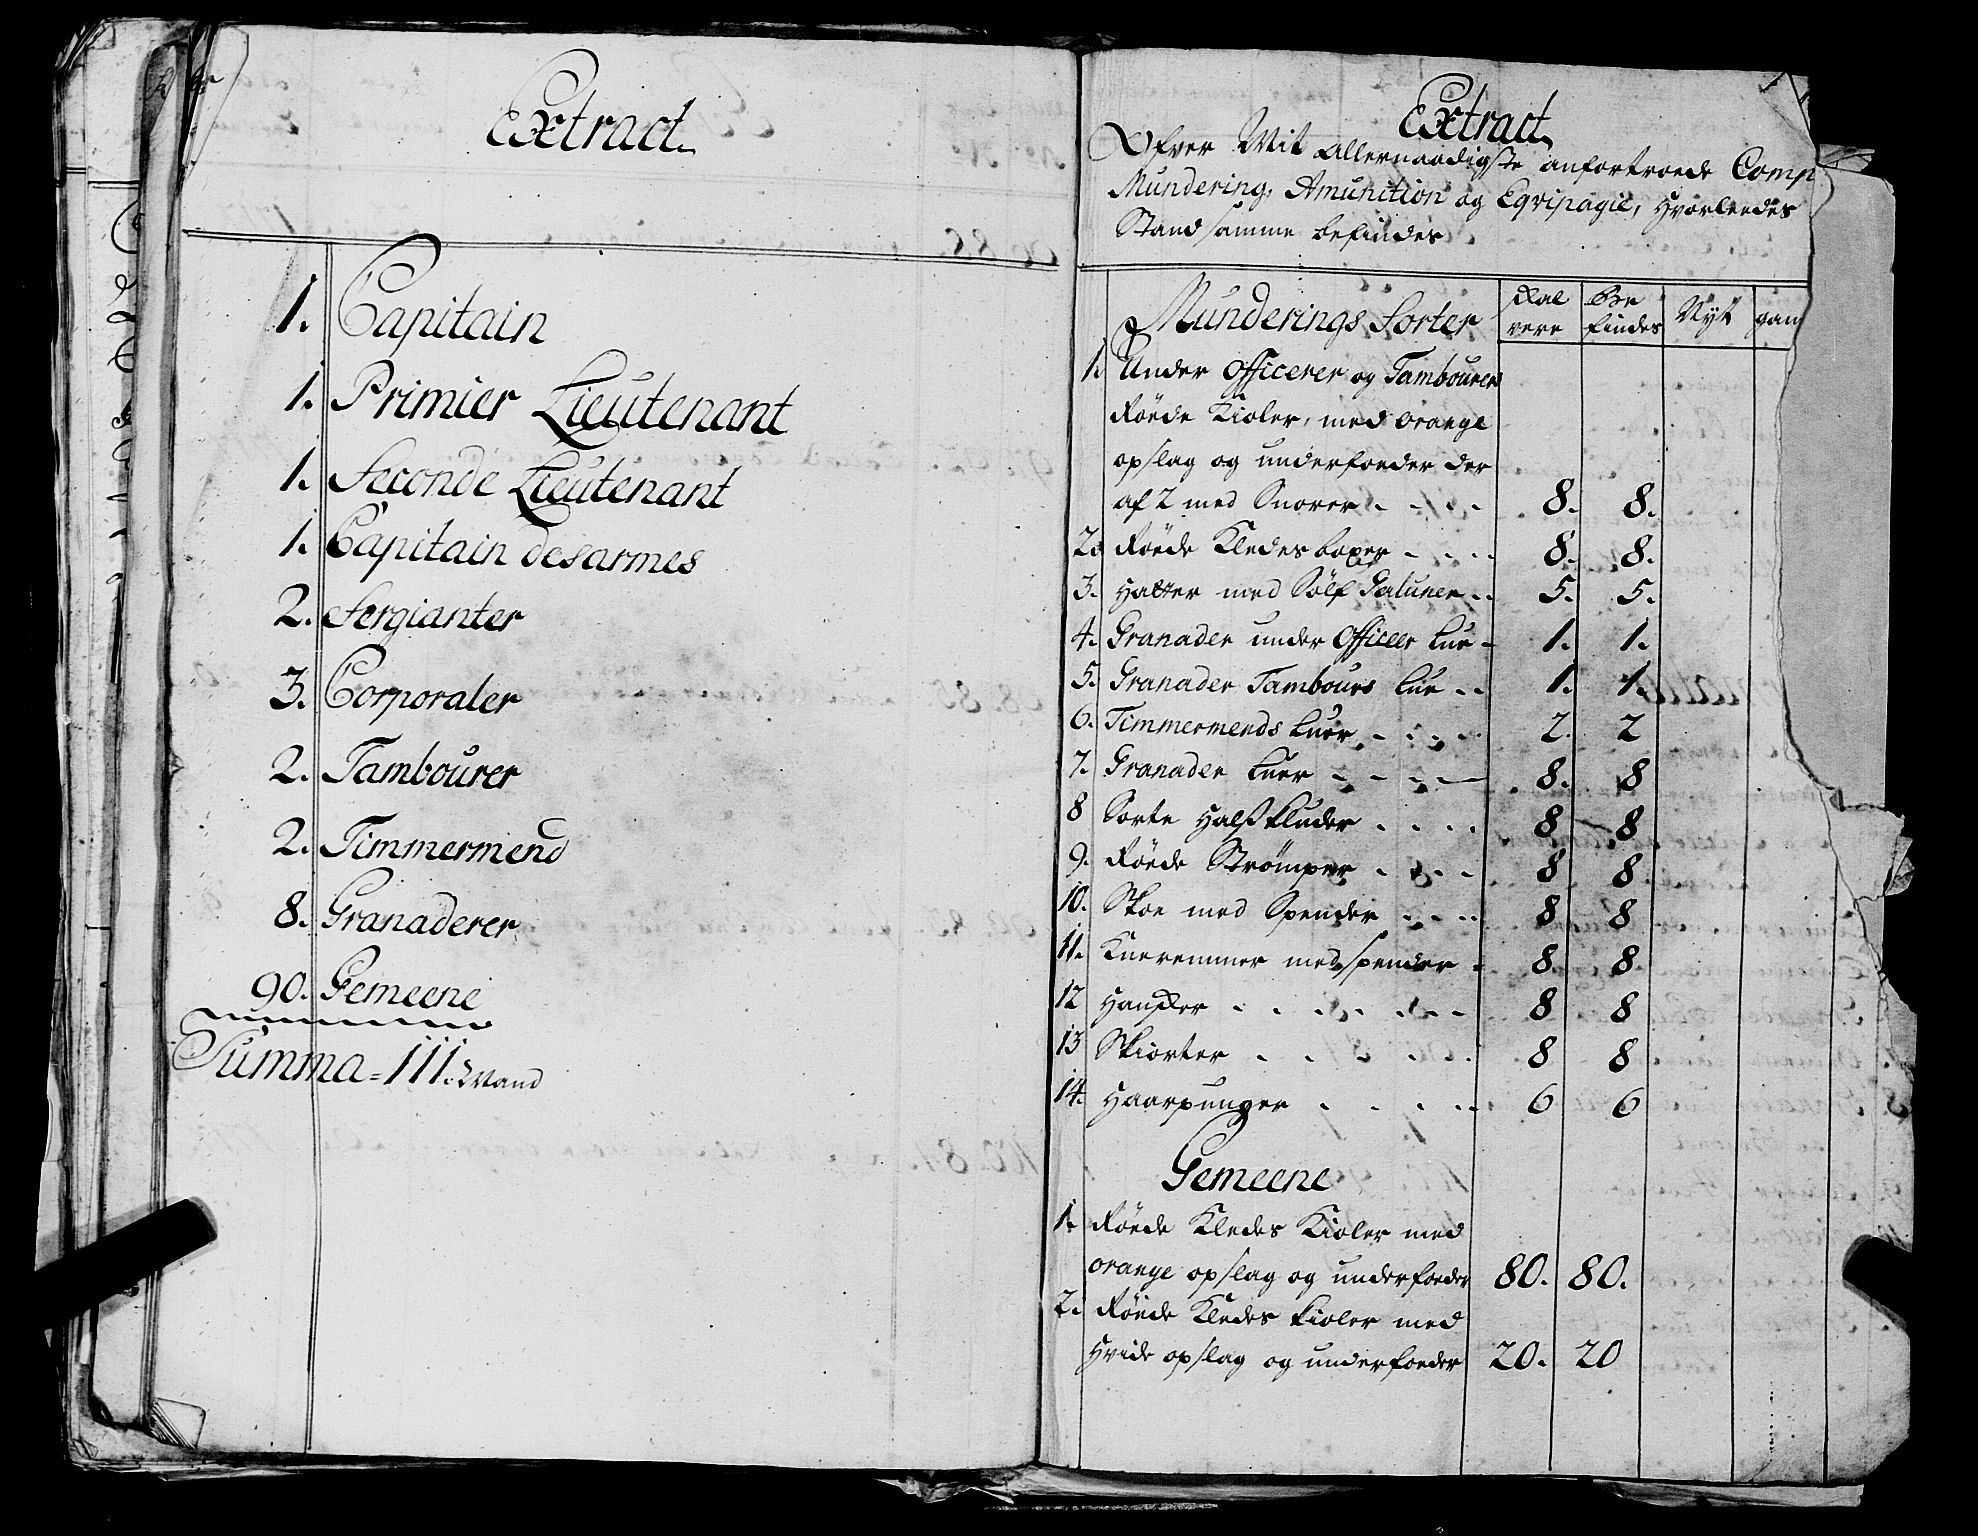 Extract.
1. Capitain
1. Primier Lieutenant
1. Seconde Lieutenant
1. Capitain desarmes
2. Sergianter
3. Corporaler
2. Tambourer
2. Timmermend
8. Granaderer
90. Gemeene
Summa = 111. Mand
Extract
Ofver Mit allernaadigste anfortroede Comp
Mundering, Amunition og Eqvipagie, Hvorleedes
Stand samme befindes
Munderings Sorter
Skal være
Be findes
Nyt
gam
1. Under Officerer og Tambourers
Röede Kioler, med orange
opslag og underfoeder der
af 2 med Snorer - - - - 8. 8.
2. Röede Kledes boxer - - - 8. 8.
3. Hatter med Sölf Galuner - - 5. 5.
4. Granader under Officeer Lue - 1. 1.
5. Granader Tambours Lue - - 1. 1.
6. Timmermends Luer - - - - 2. 2
7. Granader Luer - - - - 8. 8
8 Sorte Halskluder - - - - 8 8
9. Röede Strömper - - - - 8 8
10. Skoe med Spender - - - - 8 8
11. Kneremmer med spender - 8 8
12 Hansker - - - - - - - 8 8
13 Skiorter - - - - - - 8 8
14. Haarpunger - - - - - 6 6
Gemeene
1. Röede Kledes Kioler med
orange opslag og underfoeder 80. 80.
2. Röede Kledes kioler med
Hvide opslag og underfoeder 20. 20